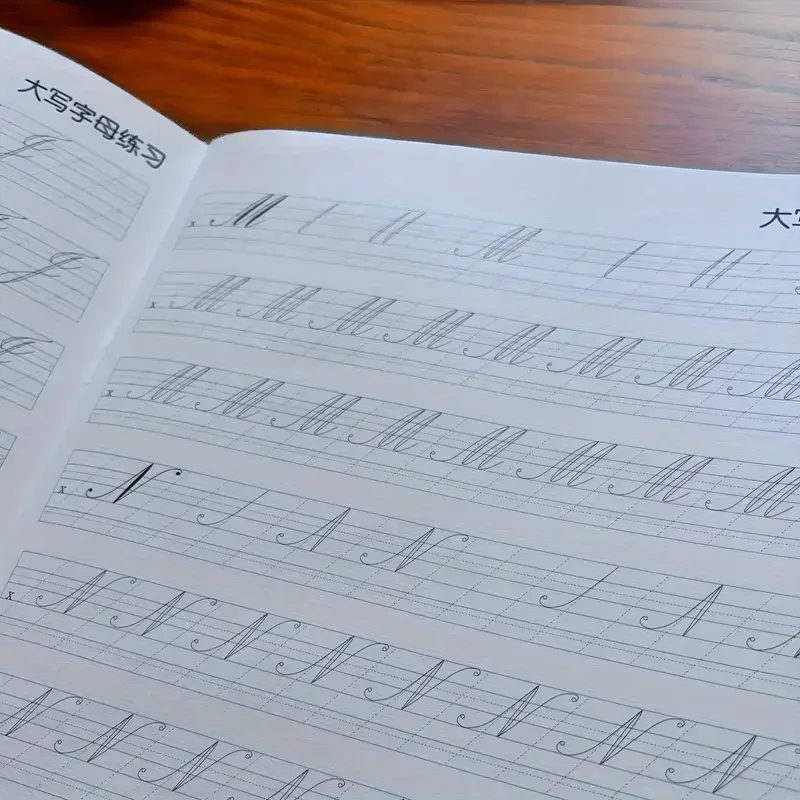 大写字母练习
J
J
J
大写
x M M
x M M M M M M M M
x M M M M M M M M
x N N
x N N N N N N N N
N N N N